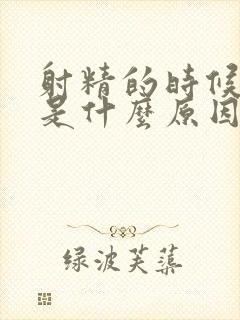 射精的时候
是什麼原因
绿波芙蕖